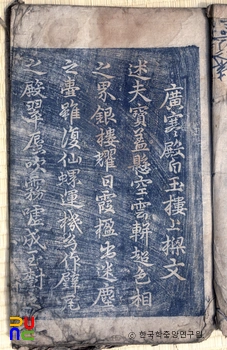 廣寒殿白玉樓上樑文
述夫寶盖懸空雲軿超色相
之界銀樓耀日霞楹出迷塵
之壺雖復仙螺運機幻作璧瓦
之殿翠蜃吹霧噓成玉
ⓒ 한국학중앙연구원